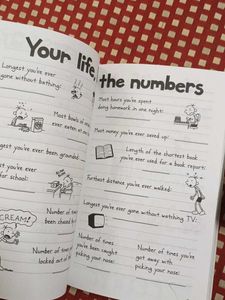 Your life,
the numbers
Longest you've ever
gone without bathing:
Most bowls of
ever eaten at
Longest you've ever been grounded:
for school:
Number of times
been chased
SCREAM!
Number of times
locked out of
Most hours you've spent
doing homework in one night:
Most money you've ever saved up:
Length of the shortest book
you've ever used for a book report:
Furthest distance you've ever walked:
Longest you've ever gone without watching TV:
Number of times
you've been caught
picking your nose:
Number of times you've
got away with
picking your nose: